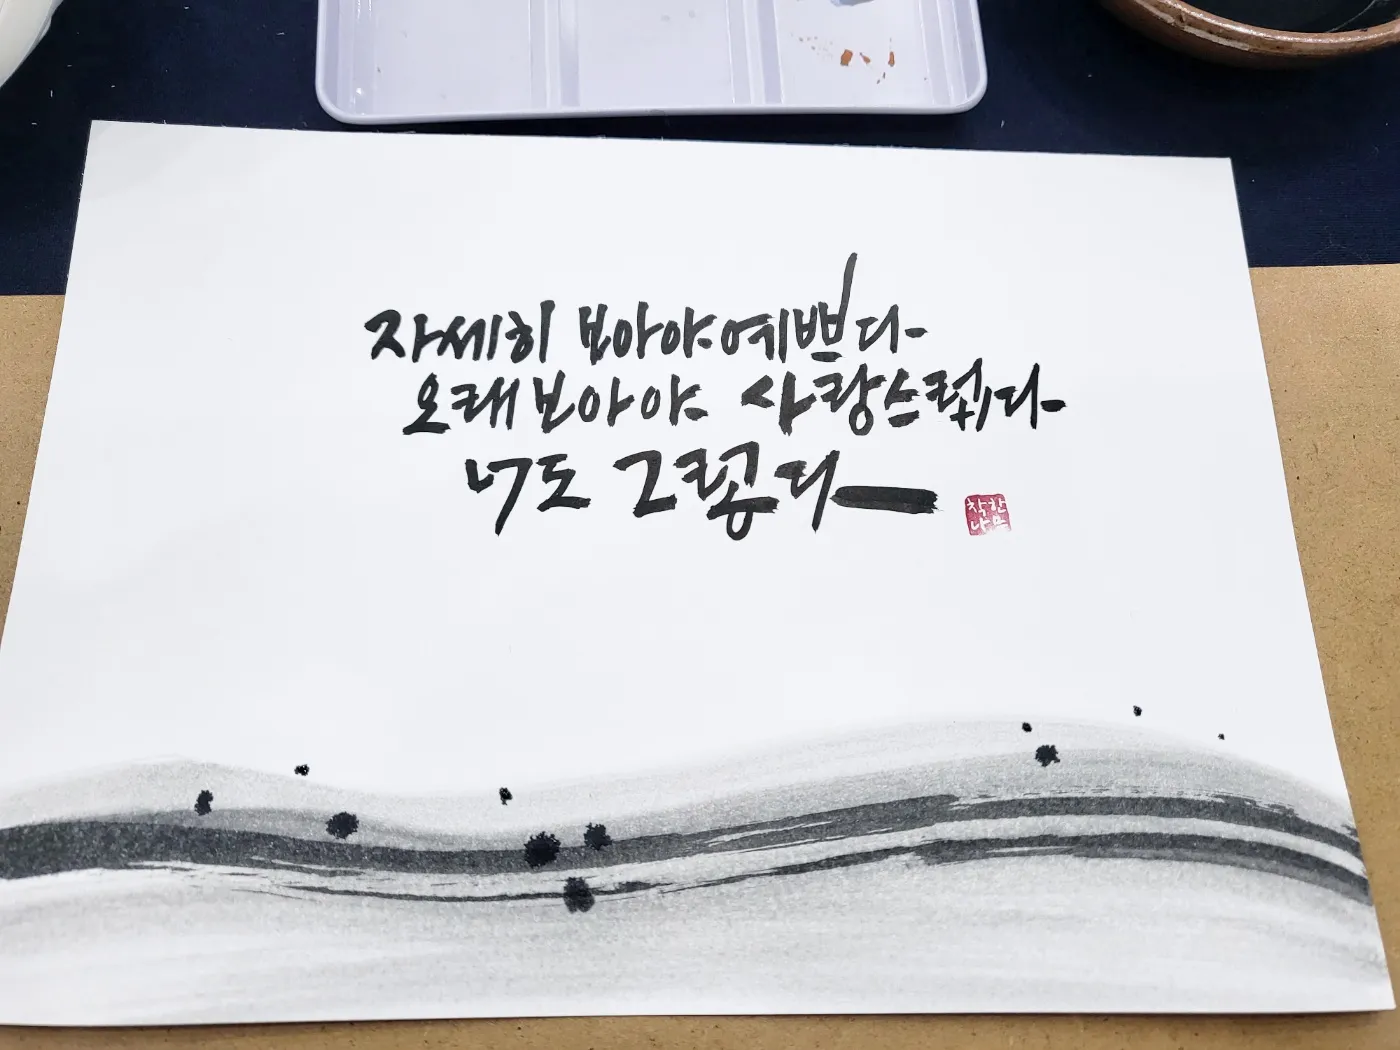 자세히 보아야 예쁘다
오래 보아야 사랑스럽다
너도 그렇다
착한
나무